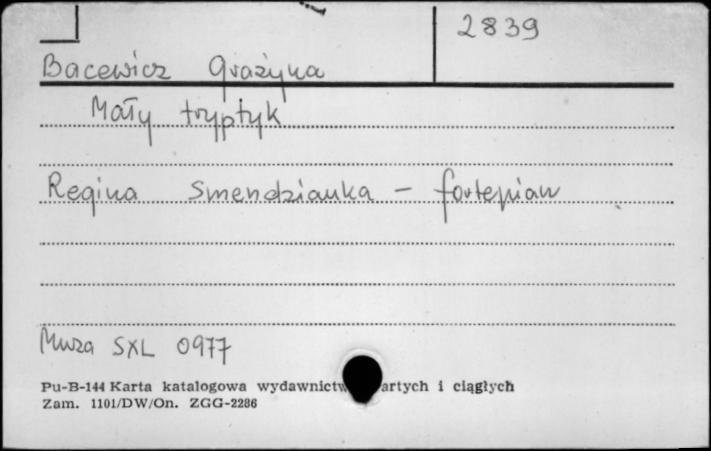 2839
Bacewicz Grażyna
Mały tryptyk
Regina Smendzianka - fortepian
Muza SXL 0977
Pu-B-144 Karta katalogowa wydawnictw artych i ciągłych
Zam. 1101/DW/On. ZGG-2286